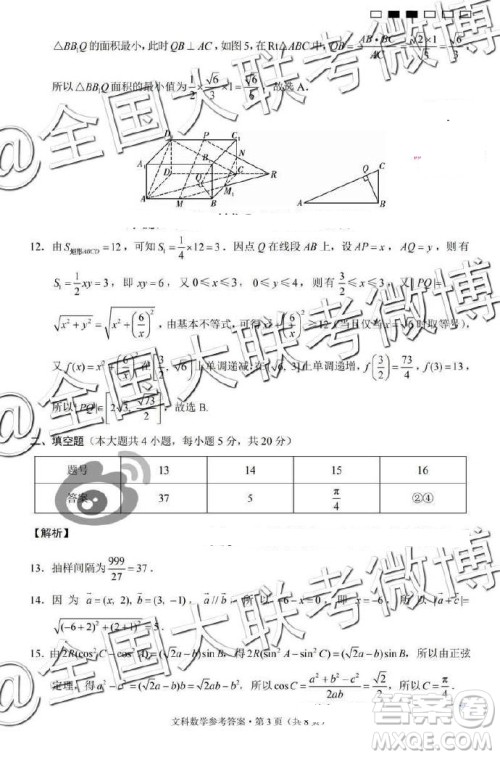 △BB₁Q的面积最小，此时QB⊥AC，如图5，在Rt△ABC中，QB=AB·BC/AC=√2×1/√3=√6/3，
所以△BB₁Q面积的最小值为1/2×√6/3×1=√6/6，故选A．
D₁ P C₁
A₁ B₁ N
D Q C R
A M B M₁
C
Q
A B
12．由S矩形ABCD=12，可知S₁=1/4×12=3．因点Q在线段AB上，设AP=x，AQ=y，则有
S₁=1/2xy=3，即xy=6，又0≤x≤3，0≤y≤4，则有3/2≤x≤3，又|PQ|=
√x²+y²=√x²+(6/x)²，由基本不等式，可得x²+(6/x)²≥12（当且仅当x=√6时取等号），
又f(x)=x²+(6/x)²在[3/2，√6]上单调递减，在[√6，3]上单调递增，f(3/2)=73/4，f(3)=13，
所以|PQ|∈[2√3，√73/2]，故选B．
二、填空题（本大题共4小题，每小题5分，共20分）
题号 13 14 15 16
答案 37 5 π/4 ②④
【解析】
13．抽样间隔为999/27=37．
14．因为a=(x，2)，b=(3，-1)，a∥b，所以-6-x=0，即x=-6，所以|a+c|=
√(-6+2)²+(2+1)²=5．
15．由2R(cos²C-cos²A)=(√2a-b)sinB，得2R(sin²A-sin²C)=(√2a-b)sinB，所以由正弦
定理，得a²-c²=(√2a-b)b，所以cosC=a²+b²-c²/2ab=√2/2，所以C=π/4．
文科数学参考答案·第3页（共8页）
@全国大联考微博
@全国大联考微博
@全国大联考微博
答案圈
MXQE.COM